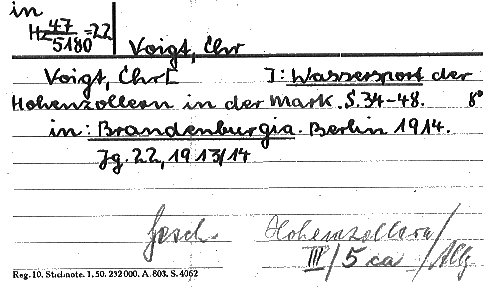 in
Hz 47/5180 =22
Voigt, Chr
Voigt, Chr[ ]: Wassersport der
Hohenzollern in der Mark. S.34-48. 8°
in: Brandenburgia. Berlin 1914.
Jg. 22, 1913/14
Gesch. Hohenzollern/
III/5 ca /Allg
Reg. 10. Stichnote. 1. 50. 232000. A. 803. S. 4062